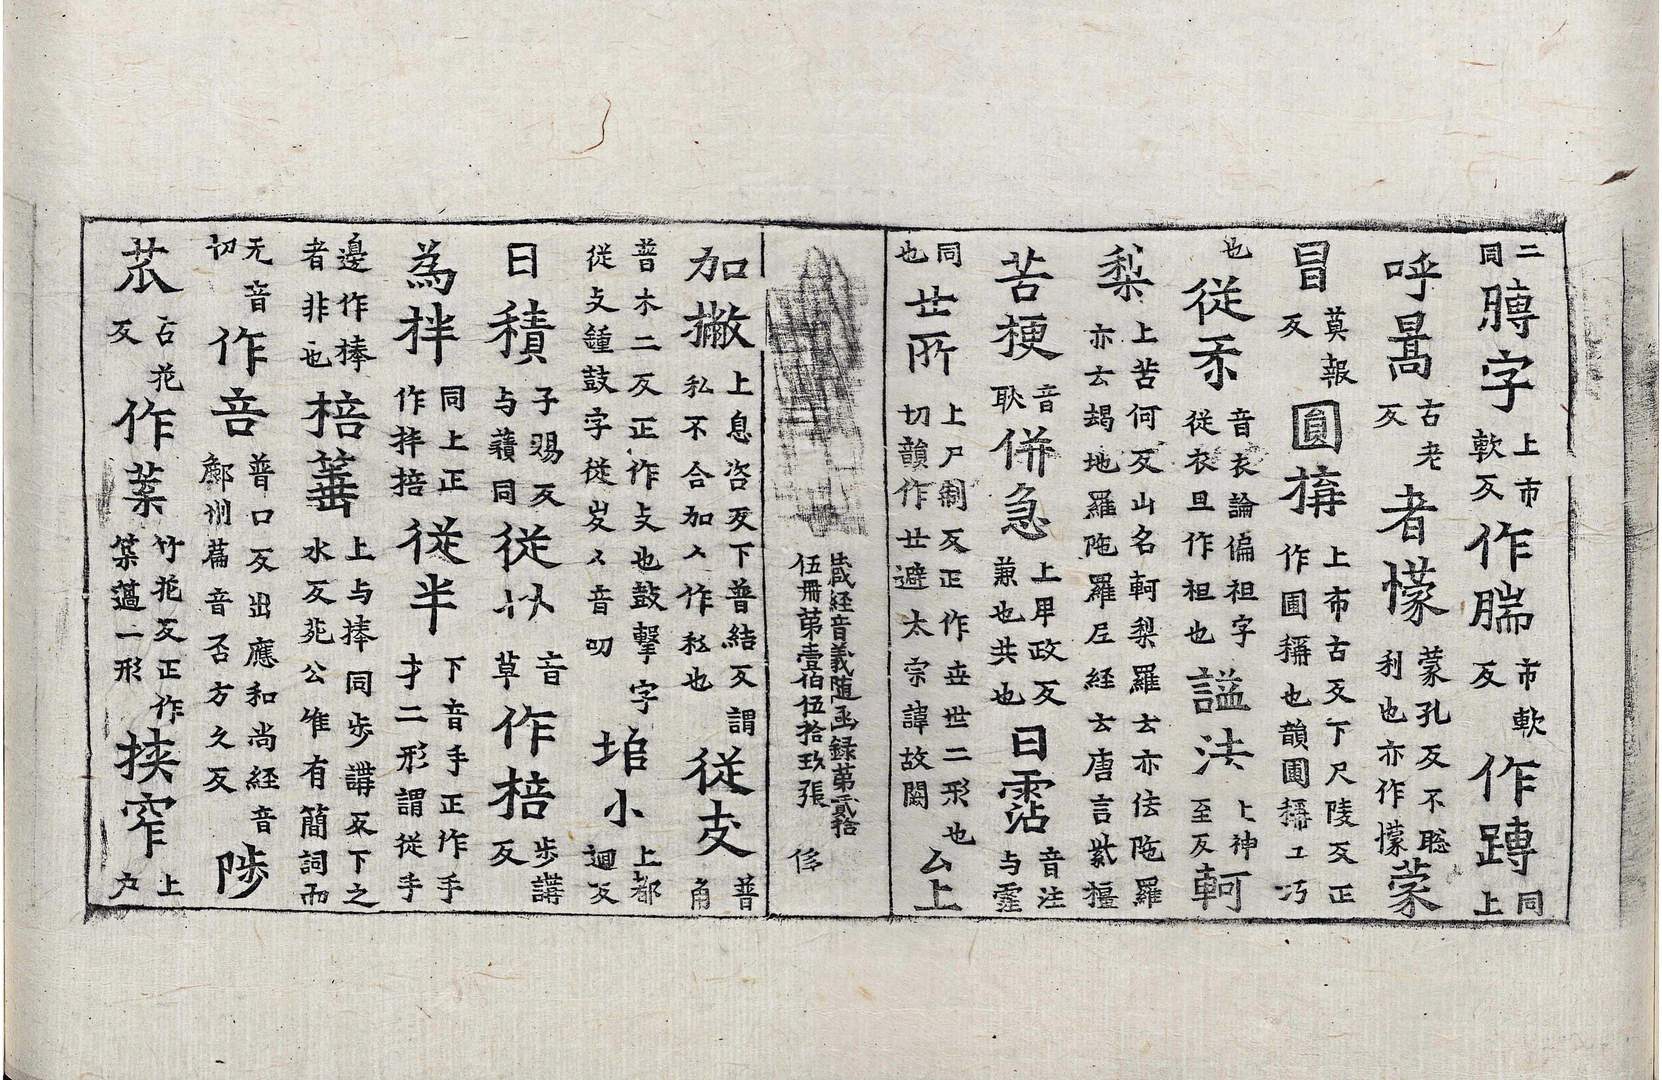 二同膞字上市軟反作腨市軟反作蹲同上
呼暠古老反者懞蒙孔反不聡利也亦作懞蒙
冒莫報反圓㨷上布古反下尺陵反正作圃稱也韻圃𥡝工巧
也從系音衣論偏袒字從衣旦作袒也謚法上神至反軻
梨上苦何反山名軻梨羅云亦佉陁羅亦云竭地羅陁羅尼経云唐言紫橿
苦梗音耿併急上畢政反兼也共也曰霑音注与霔
同也丗所上尸制反正作丗世二形也切韻作丗避太宗諱故闕厶上
蔵経音義随函録第貳拾
伍冊第壹伯伍拾玖張 俢
加撇上息咨反下普結反謂私不合加人作私也從攴普角
普木二反正作攴也鼓擊字從攴鍾鼓字従岁人音叨垖小上都迴反
曰積子賜反与䔟同從㕥音草作棓步講反
為拌同上正作拌掊從半下音手正作手才二形謂從手
邊作捧者非也棓䇶上与捧同步講反下之水反宛公唯有簡詞而
无音切作咅普口反出應和尚経音鄜州篇音否方久反陟
苽古花反作䔅竹花反正作築䔅二形挾窄上户